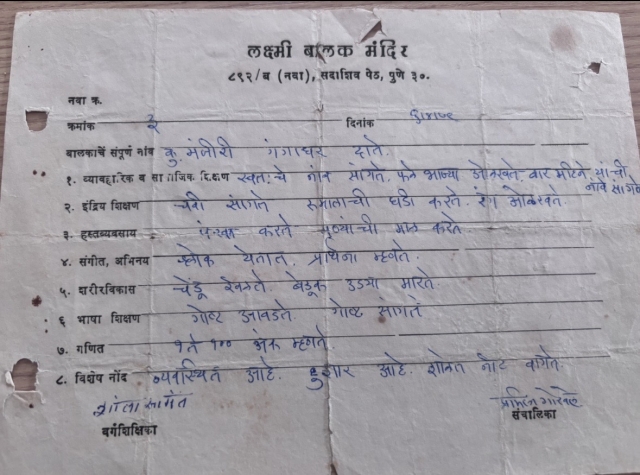 लक्ष्मी बालक मंदिर
८९२/ब (नवा), सदाशिव पेठ, पुणे ३०.
नवा क्र.
क्रमांक ३ दिनांक
बालकाचें संपूर्ण नांव कु. मंजीरी गंगाधर दाते.
१. व्यावहारिक व सामाजिक शिक्षण स्वतःचे नांव सांगते. फळे भाज्या ओळखते. वार महिने यांची
नावे सांगते
२. इंद्रिय शिक्षण चवी सांगते रुमालाची घडी करते. रंग ओळखते.
३. हस्तव्यवसाय करते करते
४. संगीत, अभिनय श्लोक येतात. प्रार्थना म्हणते.
५. शारीरविकास चेंडू खेळते. बेडूक उड्या मारते.
६ भाषा शिक्षण गोष्ट आवडते. गोष्ट सांगते
७. गणित १ ते १०० अंक म्हणते
८. विशेष नोंद व्यवस्थित आहे. हुशार आहे. शाळेत नीट वागते.
वर्गशिक्षिका
संचालिका